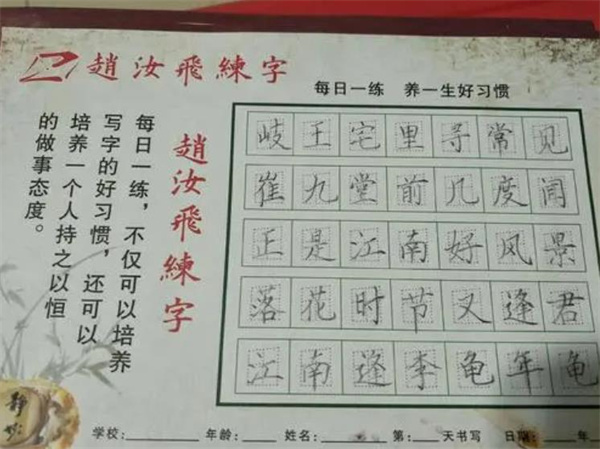 趙汝飛練字
每日一练 养一生好习惯
每日一练，不仅可以培养
写字的好习惯，还可以
培养一个人持之以恒
的做事态度。
趙汝飛練字
岐王宅里寻常见
崔九堂前几度闻
正是江南好风景
落花时节又逢君
江南逢李龟年龟
学校： 年龄： 姓名： 第： 天书写 日期： 年